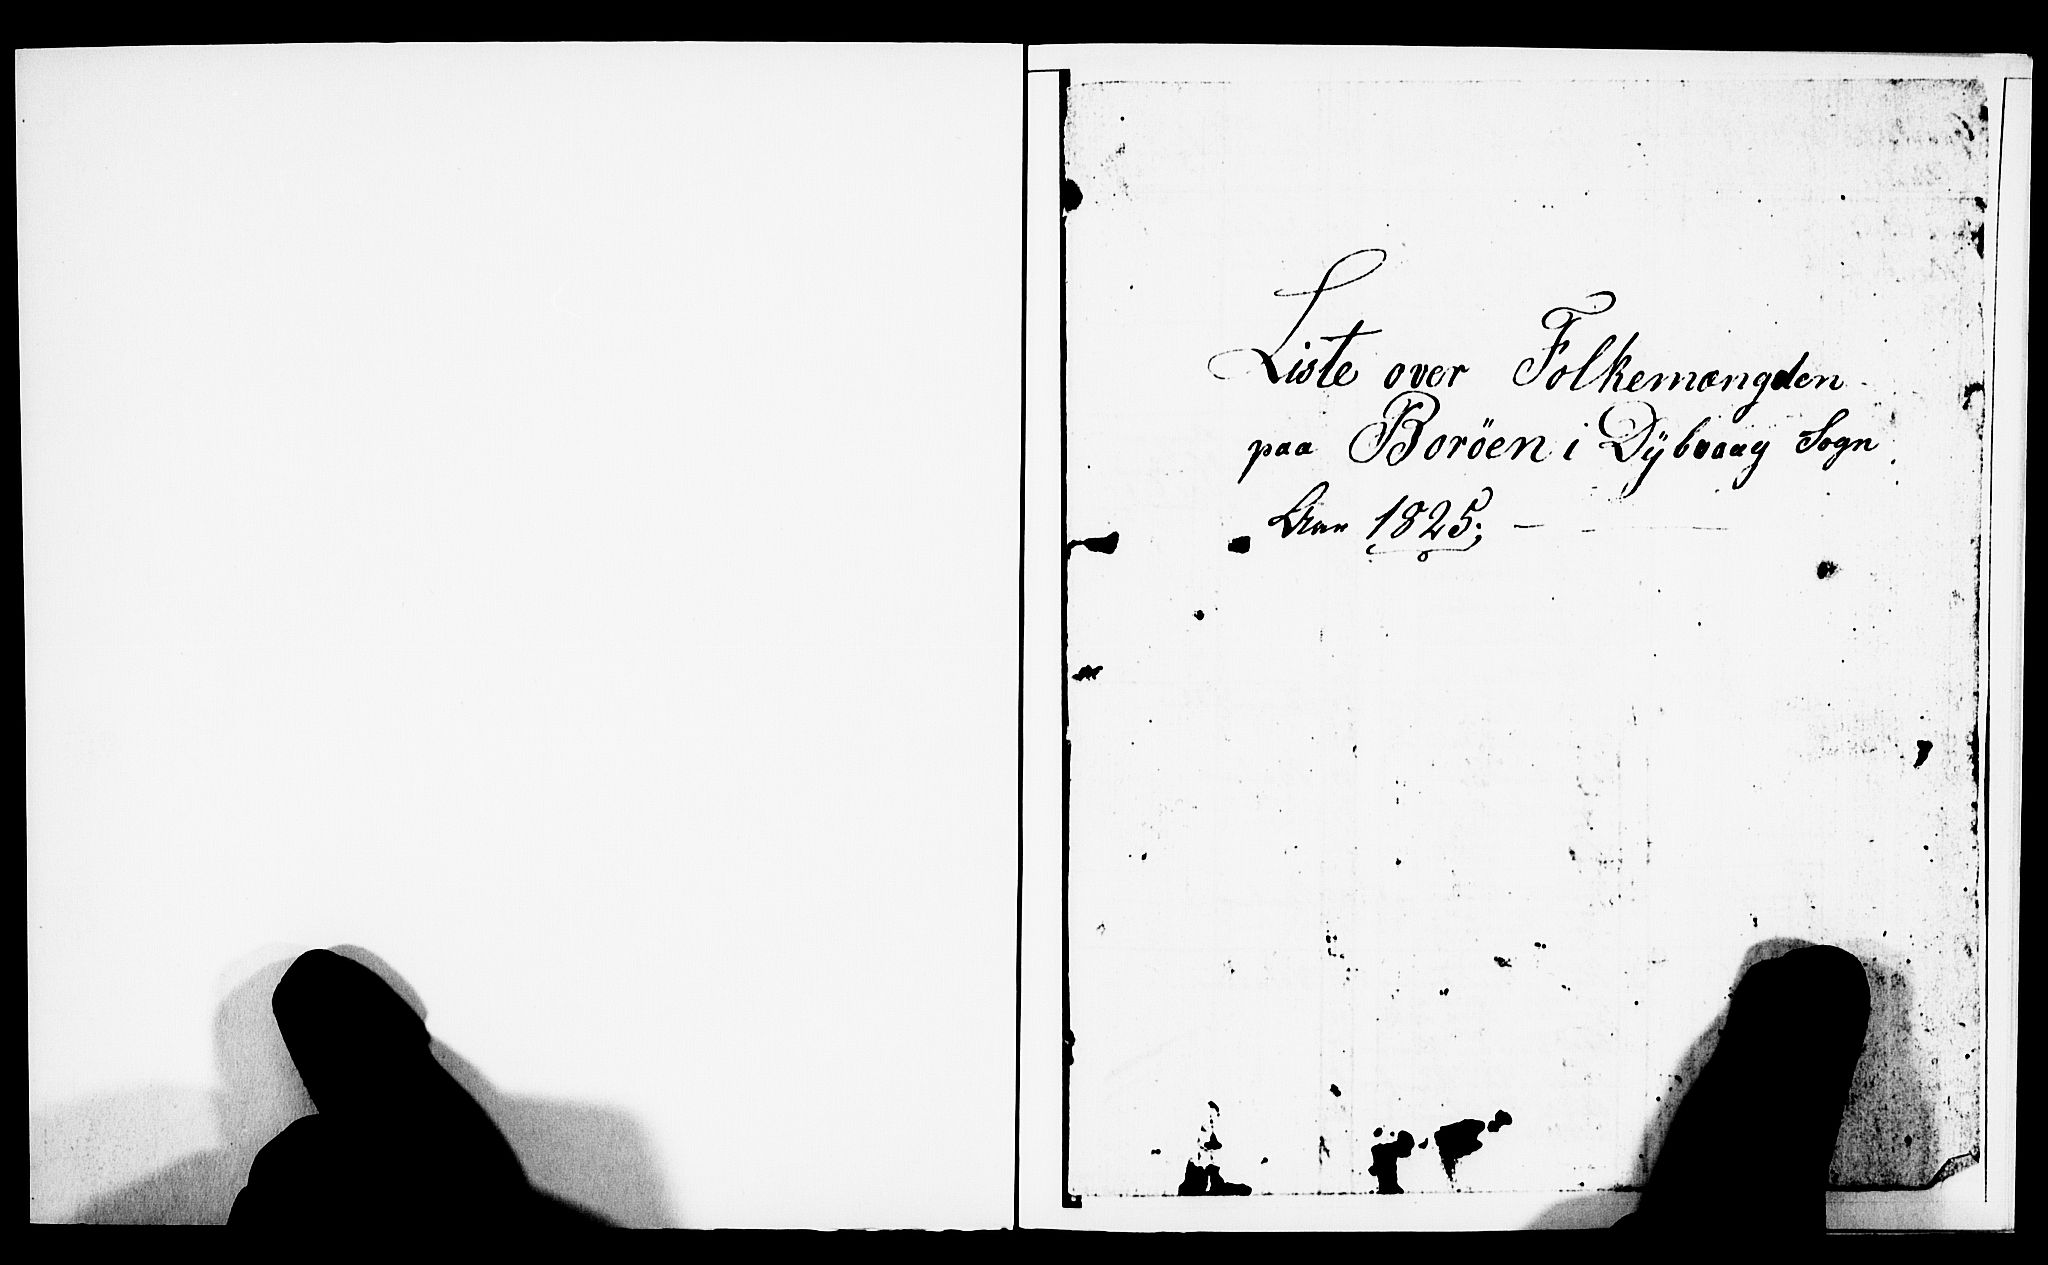 Liste over Folkemængden
paa Boröen i Dÿbvaag Sogn
Aar 1825. — - —